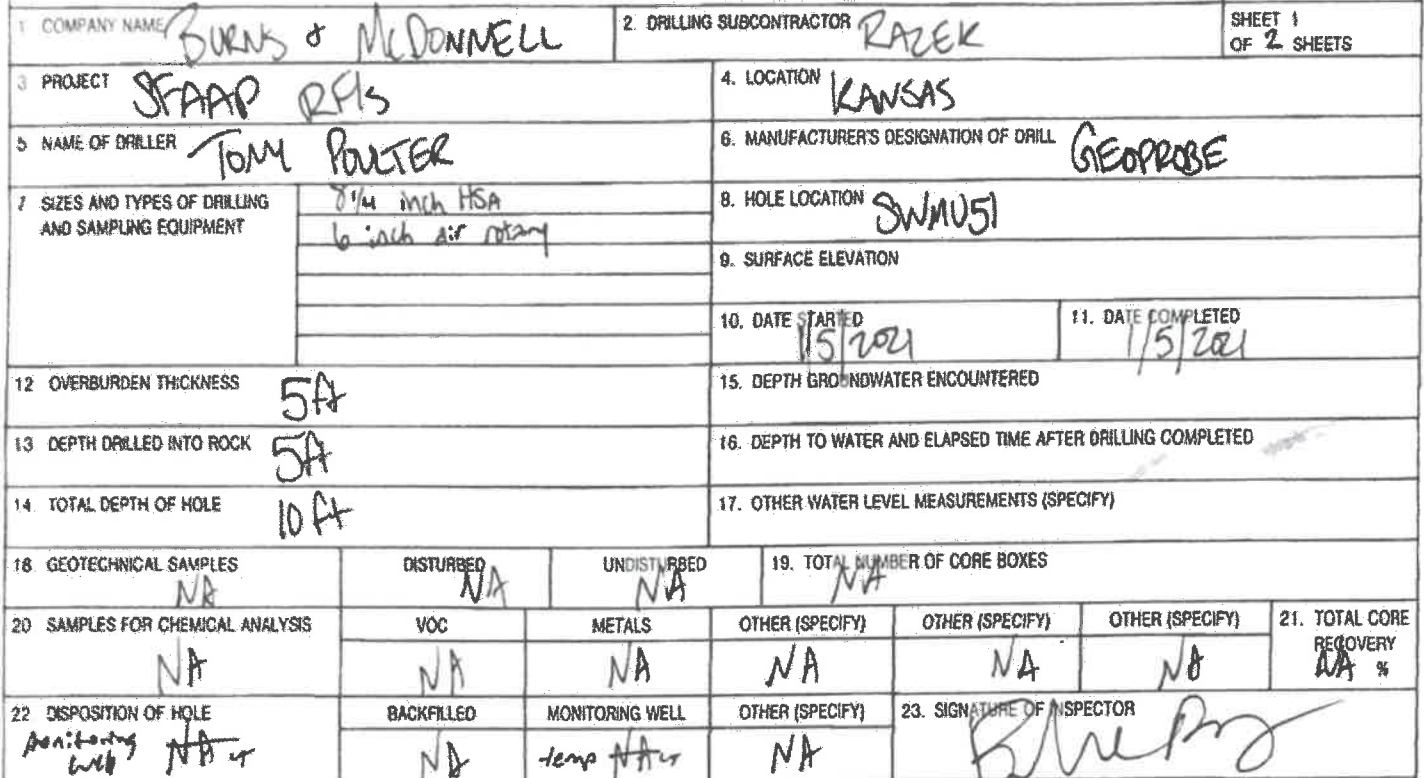 1 COMPANY NAME BURNS & McDONNELL
2. DRILLING SUBCONTRACTOR RAZEK
SHEET 1
OF 2 SHEETS
3 PROJECT SFAAP RFIs
4. LOCATION KANSAS
5 NAME OF DRILLER TONY POULTER
6. MANUFACTURER'S DESIGNATION OF DRILL GEOPROBE
7 SIZES AND TYPES OF DRILLING
AND SAMPLING EQUIPMENT
8 1/4 inch HSA
6 inch air rotary
8. HOLE LOCATION SWMU51
9. SURFACE ELEVATION
10. DATE STARTED
1/5/2021
11. DATE COMPLETED
1/5/2021
12 OVERBURDEN THICKNESS 5ft
15. DEPTH GROUNDWATER ENCOUNTERED
13 DEPTH DRILLED INTO ROCK 5ft
16. DEPTH TO WATER AND ELAPSED TIME AFTER DRILLING COMPLETED
14. TOTAL DEPTH OF HOLE 10 ft
17. OTHER WATER LEVEL MEASUREMENTS (SPECIFY)
18 GEOTECHNICAL SAMPLES
NA
DISTURBED
NA
UNDISTURBED
NA
19. TOTAL NUMBER OF CORE BOXES
NA
20 SAMPLES FOR CHEMICAL ANALYSIS
NA
VOC
NA
METALS
NA
OTHER (SPECIFY)
NA
OTHER (SPECIFY)
NA
OTHER (SPECIFY)
NA
21. TOTAL CORE
RECOVERY
NA %
22 DISPOSITION OF HOLE
monitoring
well NA
BACKFILLED
NA
MONITORING WELL
temp NA
OTHER (SPECIFY)
NA
23. SIGNATURE OF INSPECTOR